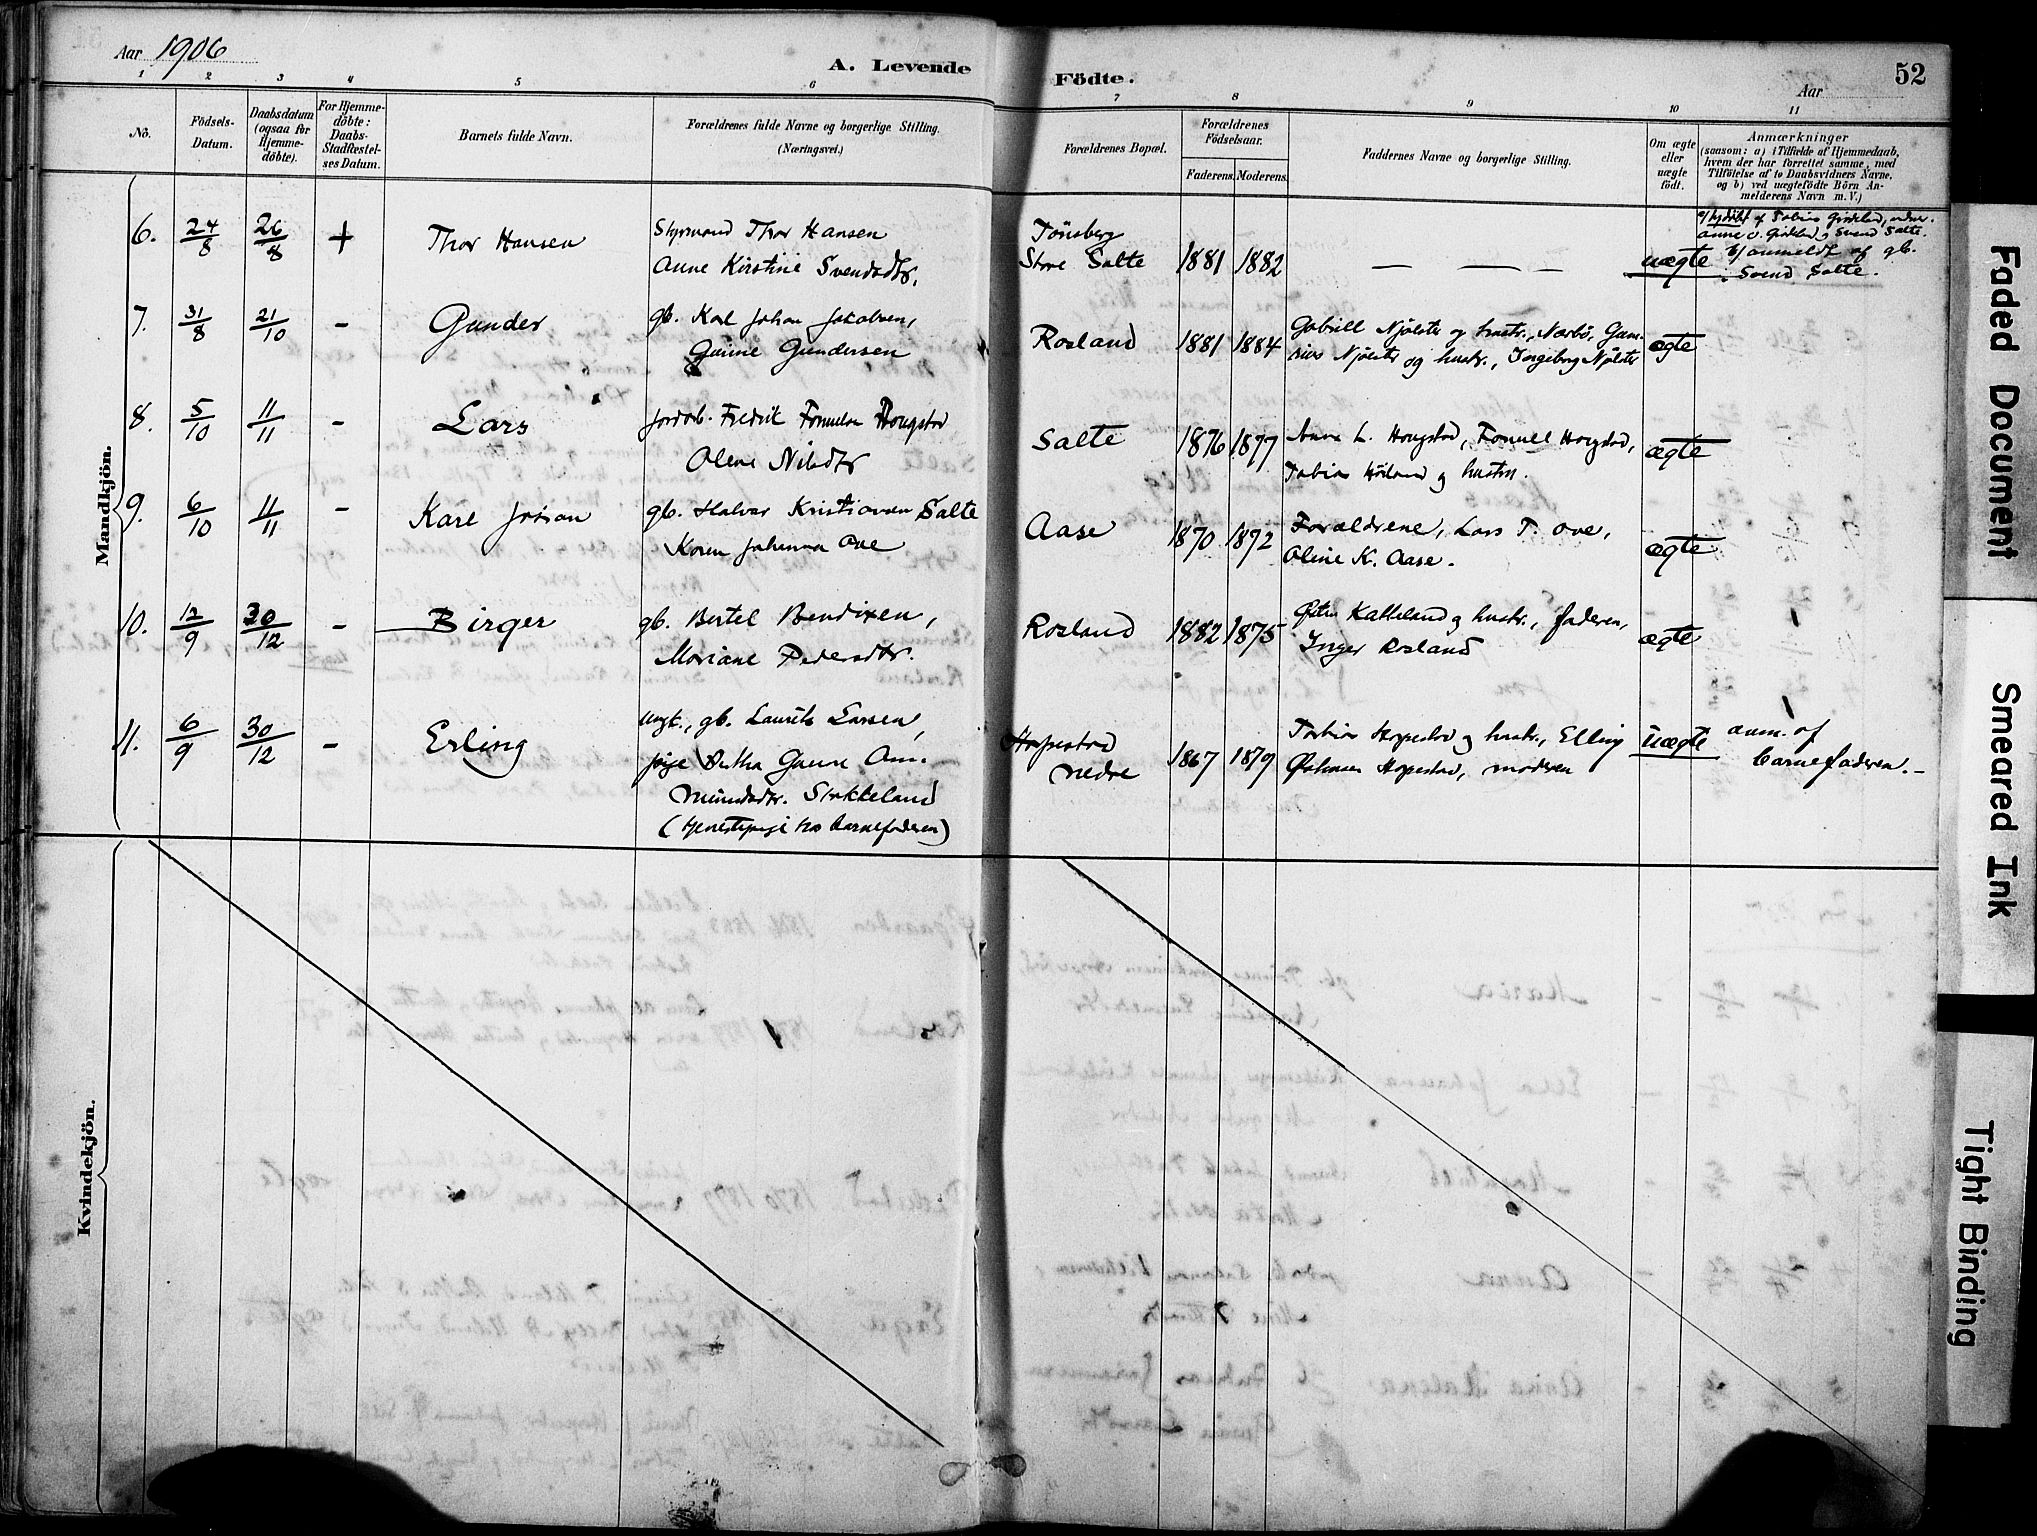 Aar 1906
A. Levende Födte.
Aar
52
1 2 3 4 5 6 7 8 9 10 11
Nö.
Födsels-Datum.
Daabsdatum (ogsaa for Hjemme-döbte).
For Hjemme-döbte: Daabs-Stadfæstel-ses Datum.
Barnets fulde Navn.
Forældrenes fulde Navne og borgerlige Stilling.
(Næringsvei.)
Forældrenes Bopæl.
Forældrenes Födselsaar.
Faderens. Moderens.
Faddernes Navne og borgerlige Stilling.
Om ægte eller uægte födt.
Anmærkninger
(saasom: a) i Tilfælde af Hjemmedaab,
hvem der har forrettet samme, med
Tilföielse af to Daabsvidners Navne,
og b) ved uægtefödte Börn An-
melderens Navn m. V.)
Mandkjön.
6. 24/8 26/8 + Thor Hansen
Styrmand Thor Hansen
Anne Kirstine Svendsdtr.
Tönsberg
Store Salte 1881 1882 — — — uægte
Svend Salte.
b/ anmeldt af gb.
Svend Salte.
7. 31/8 21/10 - Gunder
gb. Karl Johan Jakobsen,
Gurine Gundersen
Rosland 1881 1884
Gabriel Njölstr og hustr., Nærbö,
Njölstr og hustr., Ingeborg Njölstr
ægte
8. 5/10 11/11 - Lars
jordarb. Fredrik Hougstad
Olene Nilsdtr
Salte 1876 1877
L. Hougstad, Hougstad,
Tobias Höiland og hustru.
ægte
9. 6/10 11/11 - Karl Johan
gb. Halvor Kristiansen Salte
Karen Johanna Ove
Aase 1870 1872
Forældrene, Lars T. Ove,
Oline K. Aase.
ægte
10. 12/9 30/12 - Birger
gb. Bertel Bendixen,
Mariane Pedersdtr.
Rosland 1882 1875
Kalleland og hustr., faderen,
Inger Rosland
ægte
11. 6/9 30/12 - Erling
ungk., gb. Laurits Larsen,
pige Bertha Gurine Am-
mundsdtr. Stokkeland
(tjenestepige hos barnefaderen)
Hopestad
nedre 1867 1879
Tobias Hopestad og hustr., Elling
Hopestad, moderen
uægte
anm. af
barnefaderen.-
Kvindekjön.
Faded Document
Smeared Ink
Tight Binding